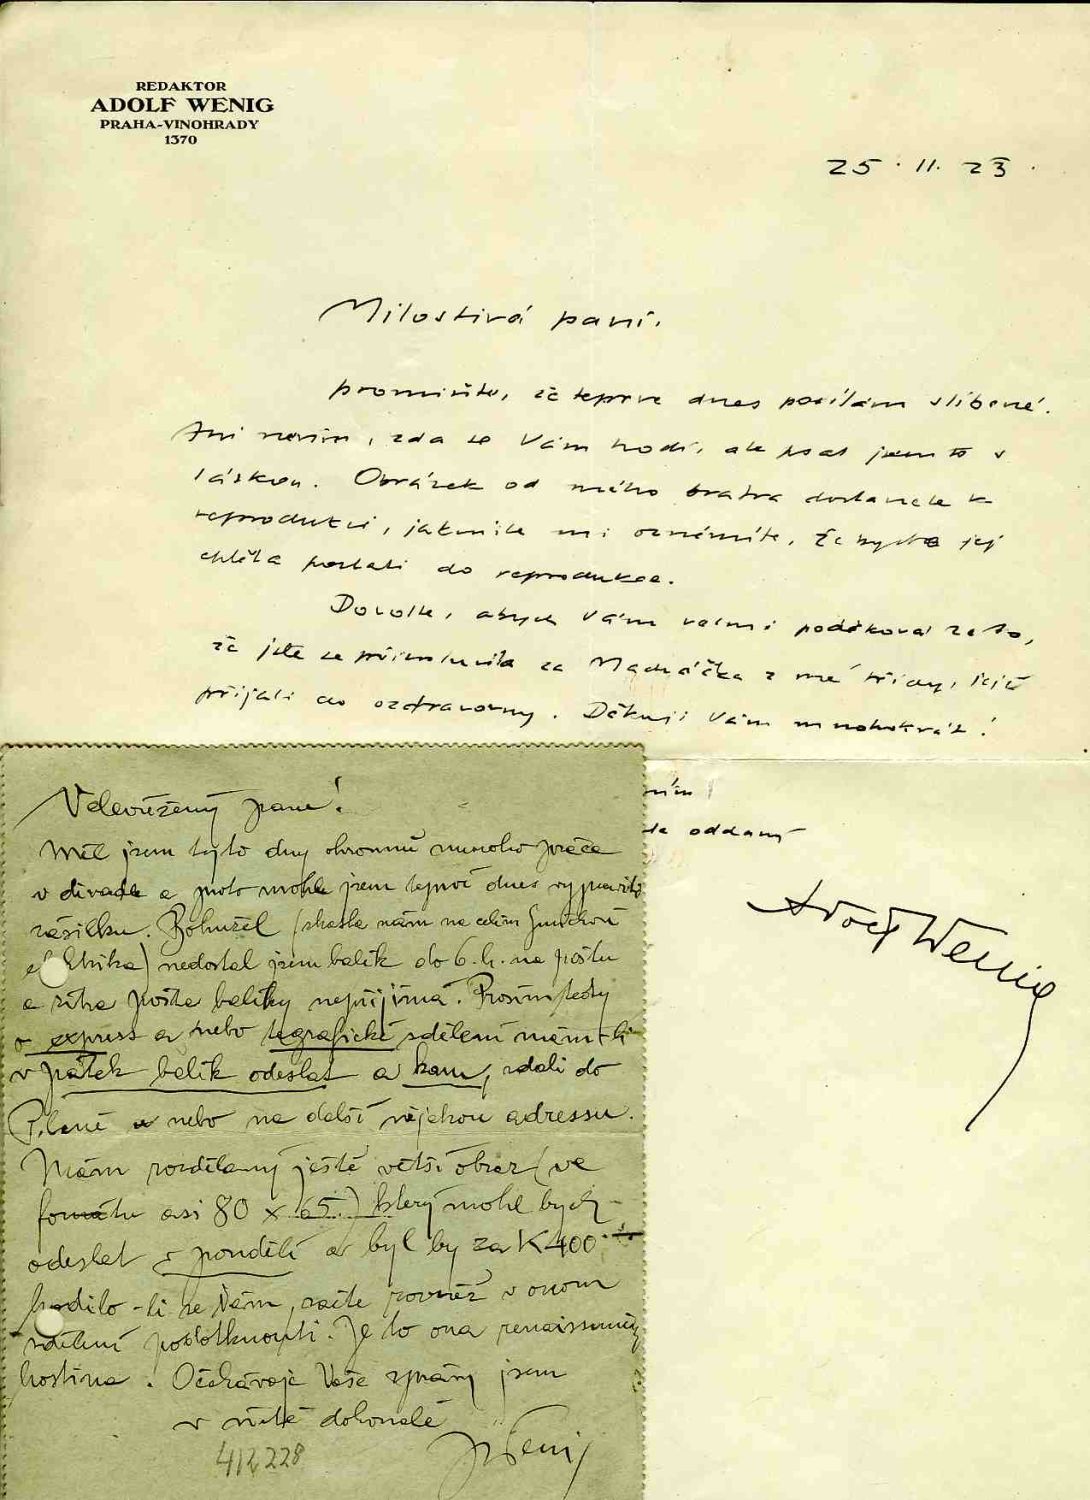 REDAKTOR
ADOLF WENIG
PRAHA-VINOHRADY
1370
25. 11. 23.
Milostivá paní.
promiňte, že teprve dnes posílám slíbené.
Ani nevím, zda se Vám hodí, ale psal jsem to s
láskou. Obrázek od mého bratra dostanete k
reprodukci, jakmile mi oznámíte, že byste jej
chtěla poslati do reprodukce.
Dovolte, abych Vám velmi poděkoval za to,
že jste se přimluvila za z mé třídy, jejž
přijali do ozdravovny. Děkuji Vám mnohokrát!
oddaný
Adolf Wenig
Velevážený pane!
Měl jsem tyto dny ohromně mnoho práce
v divadle a proto mohl jsem teprvé dnes vypraviti
zásilku. Bohužel (stávkla nám na celém Smíchově
elektrika) nedostal jsem balík do 6. h. na poštu
a zítra pošta balíky nepřijímá. Prosím tedy
o express a nebo tegrafické sdělení mám-li
v pátek balík odeslat a kam, zdali do
Plzně a nebo na další nějakou adressu.
Mám rozdělaný ještě větší obraz (ve
formátu asi 80 x 65.) který mohl bych
odeslat v pondělí a byl by za K 400·-
hodilo-li se Vám, račte rovněž v onom
sdělení podotknouti. Je to ona renaissanční
hostina. Očekávaje Vaše zprávy jsem
v úctě dokonalé
JWenig
412228